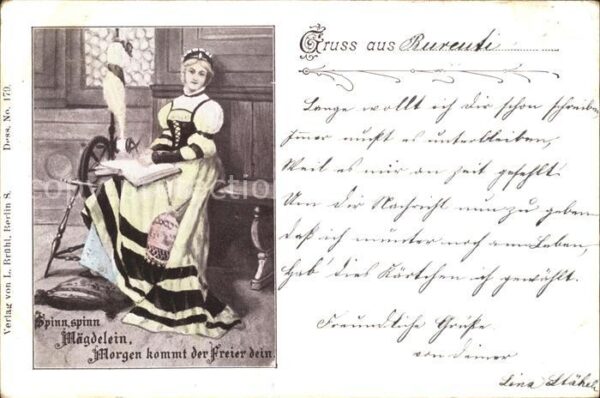 Verlag von L. Brühl, Berlin S. Dess. No. 179.
Spinn, spinn
Mägdelein,
Morgen kommt der Freier dein.
Gruss aus
Lange wollt ich dir schon schreiben
Immer mußt es unterbleiben,
Weil es mir an Zeit gefehlt.
Um dir Nachricht nun zu geben
daß ich munter noch am Leben,
Hab' dies Kärtchen ich gewählt.
Freundliche Grüße
von deiner
Lina